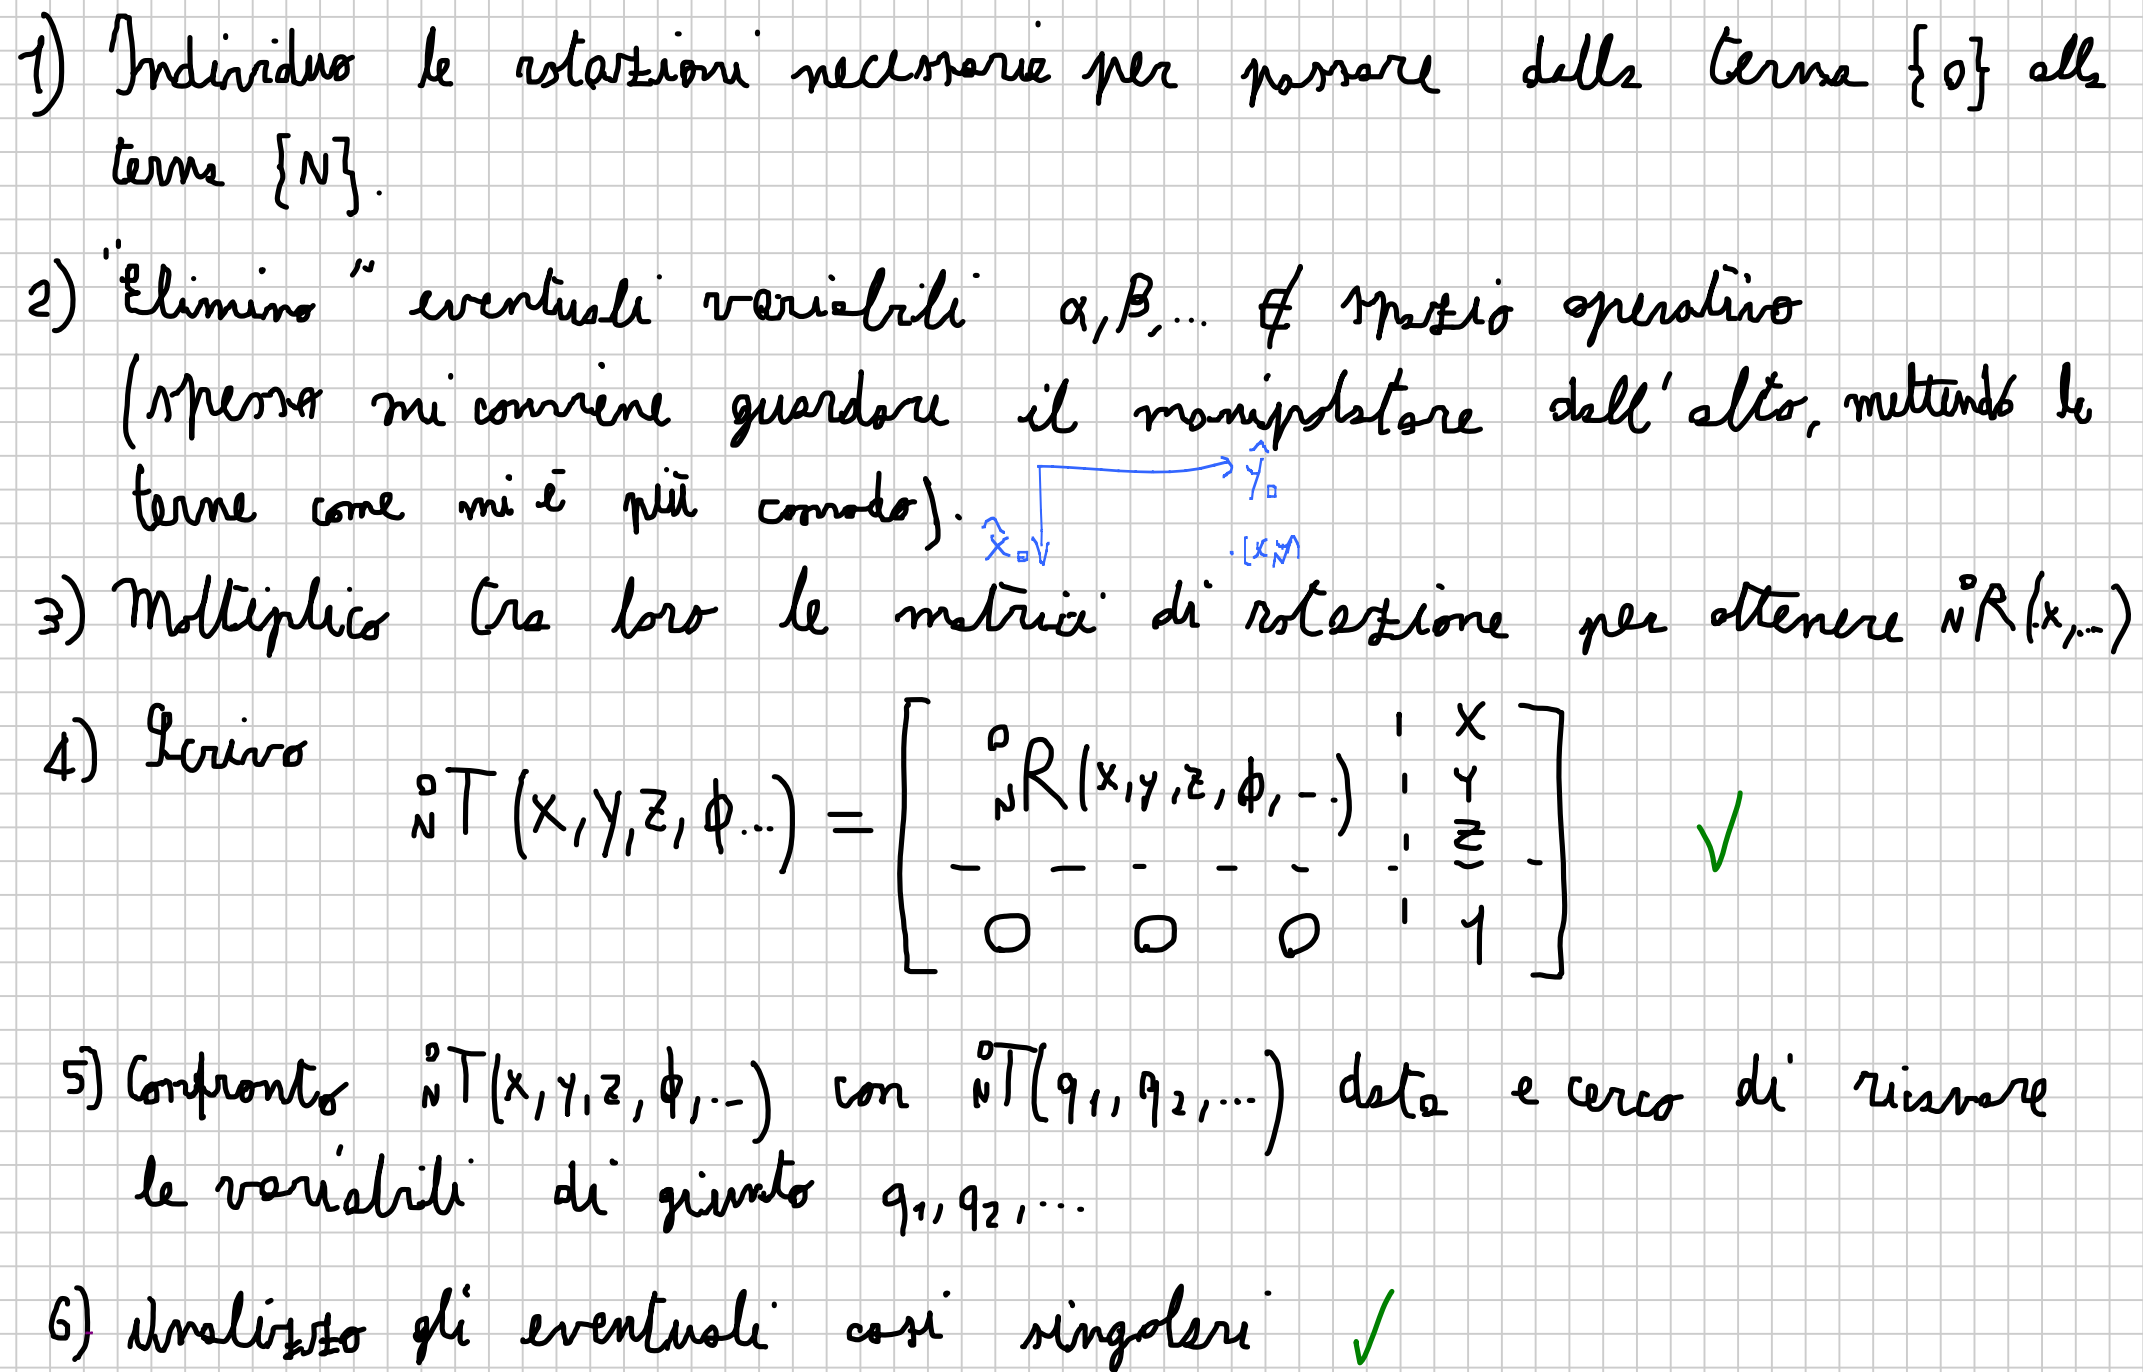 1) Individuo le rotazioni necessarie per passare dalla terna {0} alla
terna {N}.
2) "Elimino" eventuali variabili α, β, ... ∉ spazio operativo
(spesso mi conviene guardare il manipolatore dall'alto, mettendo le
terne come mi è più comodo).
ŷ₀
x̂₀
(x,y)
3) Moltiplico tra loro le matrici di rotazione per ottenere ⁰_N R(x,...)
4) Scrivo
⁰_N T(x, y, z, φ...) = [ ⁰_N R(x, y, z, φ, ...) ¦ x y z ; 0 0 0 ¦ 1 ] ✓
5) Confronto ⁰_N T(x, y, z, φ, ...) con ⁰_N T(q₁, q₂, ...) data e cerco di ricavare
le variabili di giunto q₁, q₂, ...
6) Analizzo gli eventuali casi singolari ✓